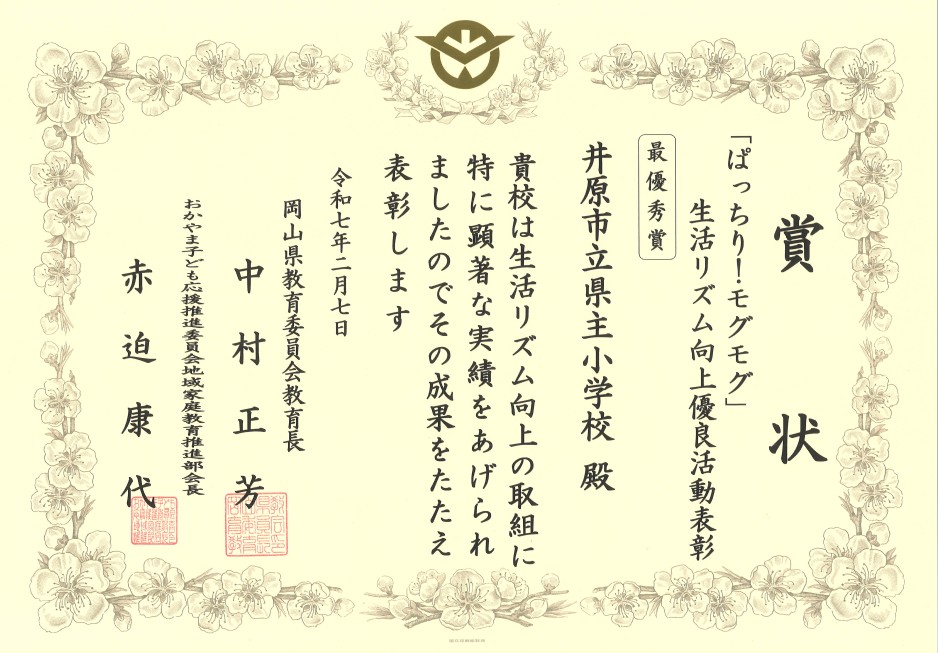 賞状
「ぱっちり！モグモグ」
生活リズム向上優良活動表彰
最優秀賞
井原市立県主小学校 殿
貴校は生活リズム向上の取組に
特に顕著な実績をあげられ
ましたのでその成果をたたえ
表彰します
令和七年二月七日
岡山県教育委員会教育長
中村正芳
おかやま子ども応援推進委員会地域家庭教育推進部会長
赤迫康代